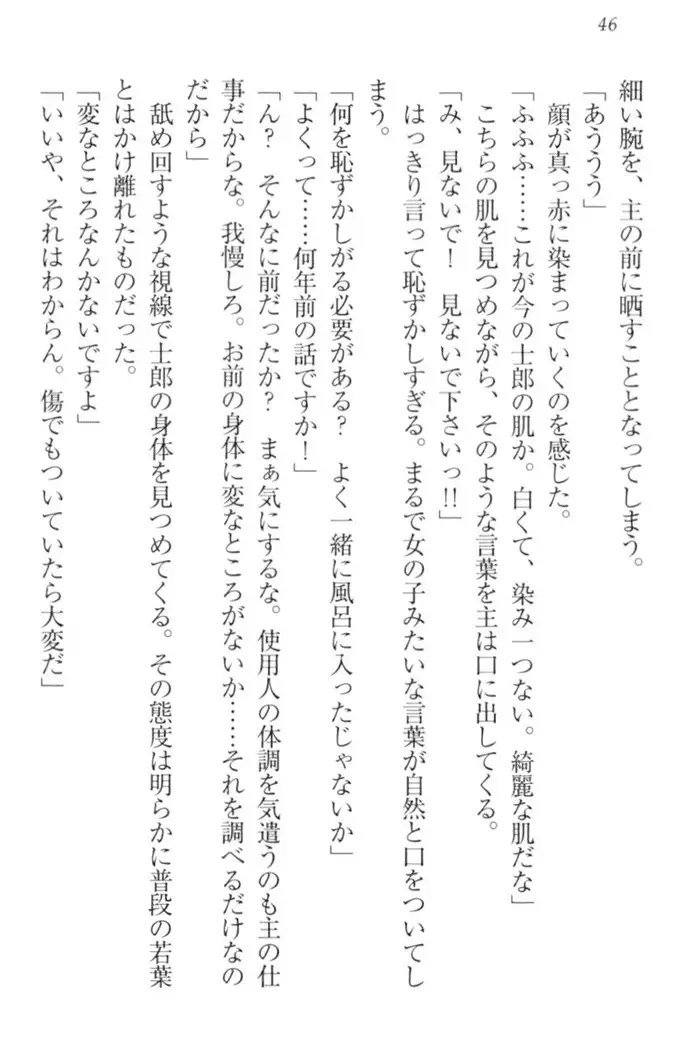 46
細い腕を、主の前に晒すこととなってしまう。
「あううう」
　顔が真っ赤に染まっていくのを感じた。
「ふふふ……これが今の士郎の肌か。白くて、染み一つない。綺麗な肌だな」
　こちらの肌を見つめながら、そのような言葉を主は口に出してくる。
「み、見ないで！　見ないで下さいっ!!」
　はっきり言って恥ずかしすぎる。まるで女の子みたいな言葉が自然と口をついてし
まう。
「何を恥ずかしがる必要がある？　よく一緒に風呂に入ったじゃないか」
「よくって……何年前の話ですか！」
「ん？　そんなに前だったか？　まぁ気にするな。使用人の体調を気遣うのも主の仕
事だからな。我慢しろ。お前の身体に変なところがないか……それを調べるだけなの
だから」
　舐め回すような視線で士郎の身体を見つめてくる。その態度は明らかに普段の若葉
とはかけ離れたものだった。
「変なところなんかないですよ」
「いいや、それはわからん。傷でもついていたら大変だ」